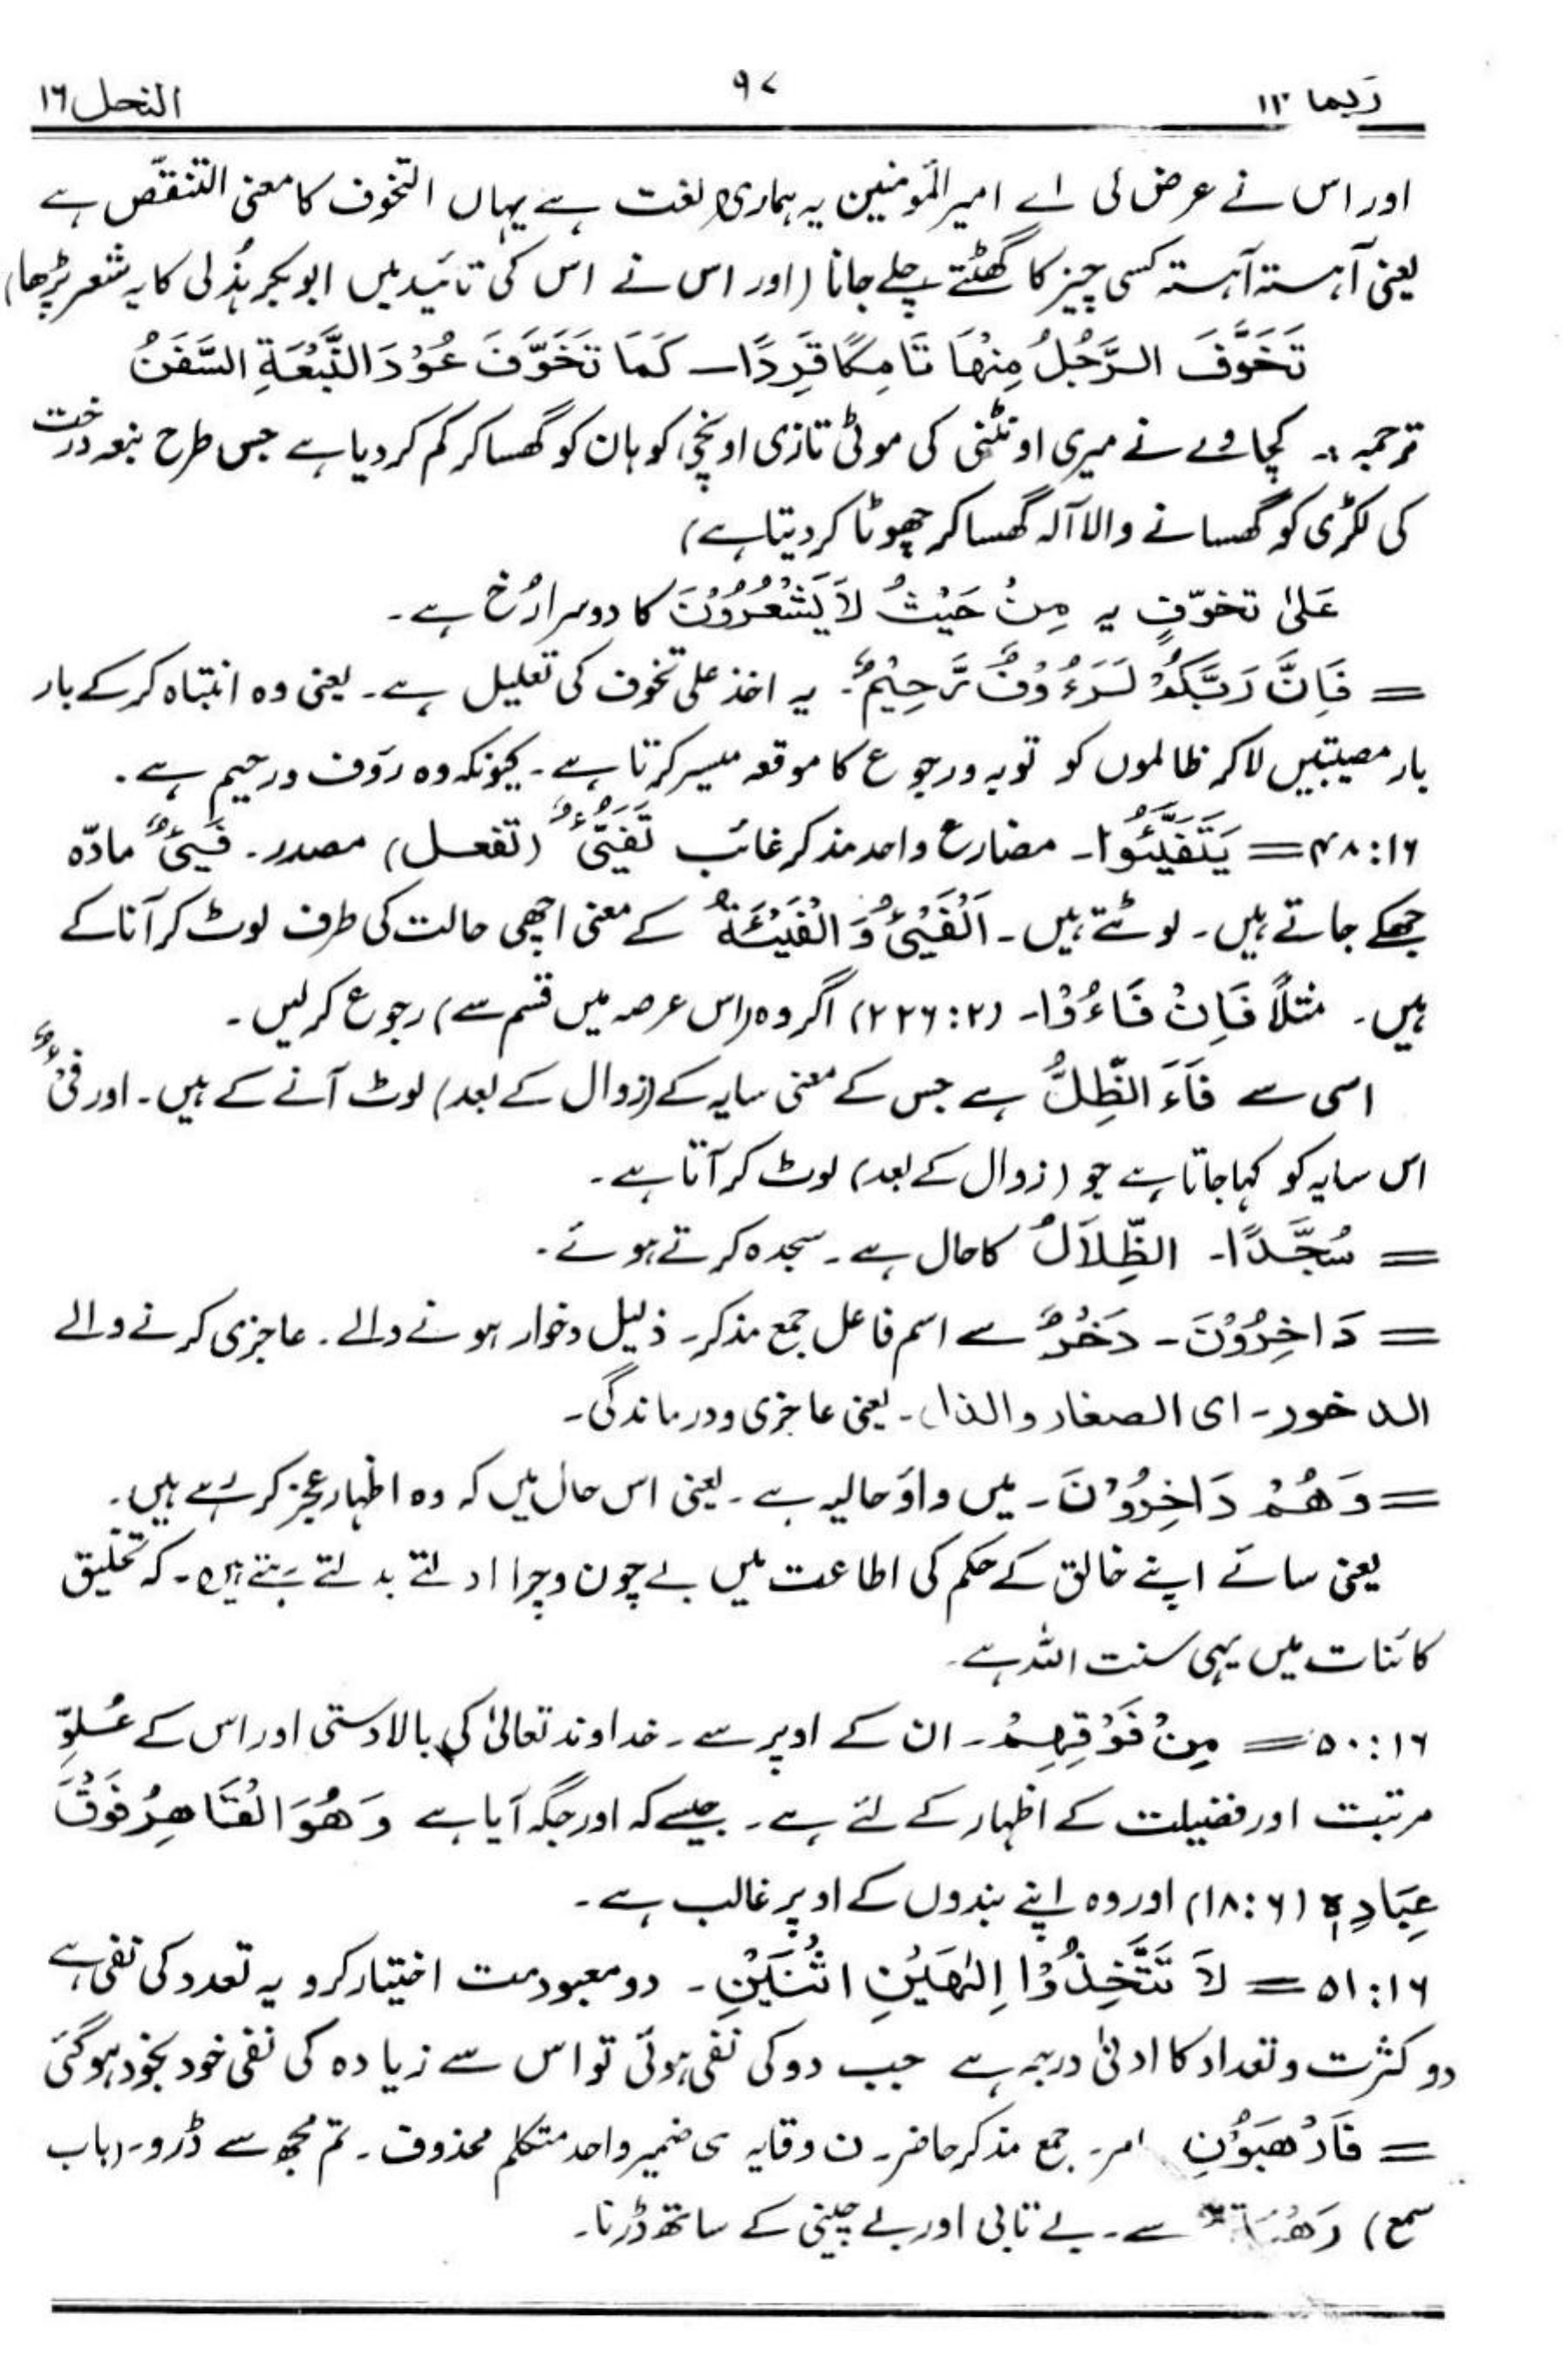 ربما ۱۴ ۹۷ النحل ۱۶
اور اس نے عرض کی اے امیر المؤمنین یہ ہماری لغت ہے یہاں التخوف کا معنی التنقّص ہے
یعنی آہستہ آہستہ کسی چیز کا گھٹتے چلے جانا (اور اس نے اس کی تائید میں ابو بکر ہذلی کا یہ شعر پڑھا)
تَخَوَّفَ الرَّجُلُ مِنْهَا تَامِكًا قَرِدًا ـ كَمَا تَخَوَّفَ عُوْدَ النَّبْعَةِ السَّفَنُ
ترجمہ :۔ کچاوے نے میری اونٹنی کی موٹی تازی اونچی کوہان کو گھسا کر کم کر دیا ہے جس طرح نبعہ درخت
کی لکڑی کو گھسانے والا آلہ گھسا کر چھوٹا کر دیتا ہے)
عَلیٰ تخوّفٍ یہ مِنْ حَيْثُ لاَ يَشْعُرُوْنَ کا دوسرا رُخ ہے۔
= فَاِنَّ رَبَّكُمْ لَرَءُوْفٌ رَّحِيْمٌ۔ یہ اخذ علی تخوف کی تعلیل ہے۔ یعنی وہ انتباہ کر کے بار
بار مصیبتیں لا کر ظالموں کو توبہ و رجوع کا موقعہ میسر کرتا ہے۔ کیونکہ وہ رؤف و رحیم ہے۔
۴۸:۱۶ = يَتَفَيَّئُوا۔ مضارع واحد مذکر غائب تَفَيُّئٌ (تفعل) مصدر۔ فَيْئٌ مادّہ
جھکے جاتے ہیں۔ لوٹتے ہیں۔ اَلْفَيْئُ وَ الْفَيْئَةُ کے معنی اچھی حالت کی طرف لوٹ کر آنا کے
ہیں۔ مثلاً فَاِنْ فَاءُوْا۔ (۲۲۶:۲) اگر وہ (اس عرصہ میں قسم سے) رجوع کر لیں۔
اسی سے فَآءَ الظِّلُّ ہے جس کے معنی سایہ کے (زوال کے بعد) لوٹ آنے کے ہیں۔ اور فَیْئٌ
اس سایہ کو کہا جاتا ہے جو (زوال کے بعد) لوٹ کر آتا ہے۔
= سُجَّدًا۔ الظِّلاَلُ کا حال ہے۔ سجدہ کرتے ہوئے۔
= دَاخِرُوْنَ۔ دَخْرٌ سے اسم فاعل جمع مذکر۔ ذلیل و خوار ہونے والے۔ عاجزی کرنے والے
الدخور۔ ای الصغار والذل۔ یعنی عاجزی و درماندگی۔
= وَهُمْ دَاخِرُوْنَ۔ میں واؤ حالیہ ہے۔ یعنی اس حال میں کہ وہ اظہار عجز کر رہے ہیں۔
یعنی سائے اپنے خالق کے حکم کی اطاعت میں بے چون و چرا ادلتے بدلتے رہتے ہیں۔ کہ تخلیق
کائنات میں یہی سنت اللہ ہے۔
۵۰:۱۶ = مِنْ فَوْقِهِمْ۔ ان کے اوپر سے۔ خداوند تعالیٰ کی بالادستی اور اس کے عُلوِّ
مرتبت اور فضیلت کے اظہار کے لئے ہے۔ جیسے کہ اور جگہ آیا ہے وَهُوَ الْقَاهِرُ فَوْقَ
عِبَادِهٖ (۱۸:۶) اور وہ اپنے بندوں کے اوپر غالب ہے۔
۵۱:۱۶ = لاَ تَتَّخِذُوْا اِلٰهَيْنِ اثْنَيْنِ۔ دو معبود مت اختیار کرو یہ تعدد کی نفی ہے
دو کثرت و تعداد کا ادنیٰ درجہ ہے جب دو کی نفی ہوئی تو اس سے زیادہ کی نفی خود بخود ہو گئی
= فَارْهَبُوْنِ امر۔ جمع مذکر حاضر۔ ن وقایہ ی ضمیر واحد متکلم محذوف۔ تم مجھ سے ڈرو۔ (باب
سمع) سے۔ بے تابی اور بے چینی کے ساتھ ڈرنا۔